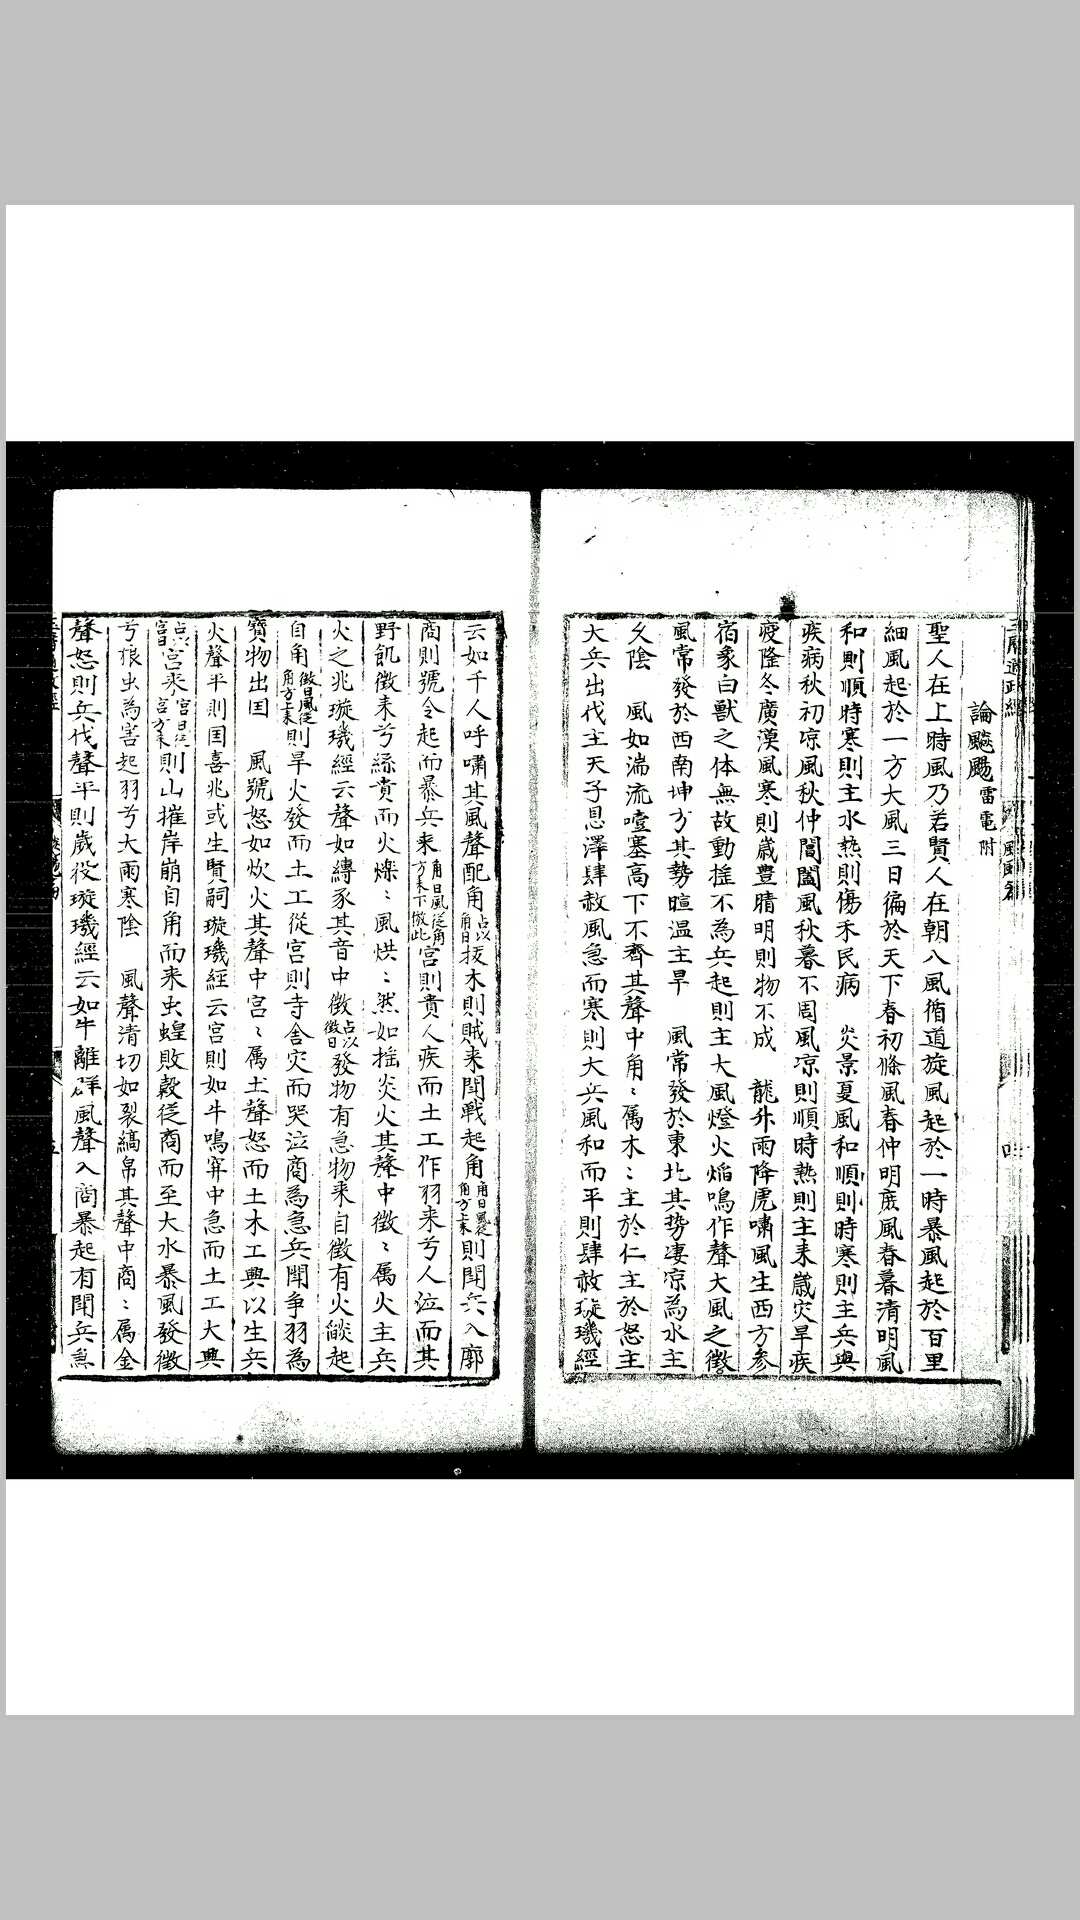 論飈颺雷電附
聖人在上時風乃若賢人在朝八風循道旋風起於一時暴風起於百里
細風起於一方大風三日徧於天下春初條風春仲明庶風春暮清明風
和則順時寒則主水熱則傷禾民病　炎景夏風和順則時寒則主兵與
疾病秋初凉風秋仲閶闔風秋暮不周風凉則順時熱則主來歲灾旱疾
疫隆冬廣漠風寒則歲豊晴明則物不成　龍升雨降虎嘯風生西方參
宿象白獸之体無故動揺不為兵起則主大風燈火焰鳴作聲大風之徵
風常發於西南坤方其勢暄温主旱　風常發於東北其勢凄凉為水主
久陰　風如湍流噎塞高下不齊其聲中角〻属木〻主於仁主於怒主
大兵出伐主天子恩澤肆赦風急而寒則大兵風和而平則肆赦璇璣經
云如千人呼嘯其風聲配角占以角日拔木則賊来聞戰起角角日風從角方上來則聞兵入廓
商則號令起而暴兵来角日風從角方來下倣此宮則貴人疾而土工作羽来兮人泣而其
野飢徵来兮絲賁而火爍〻風烘〻然如揺炎火其聲中徵〻属火主兵
火之兆璇璣經云聲如縳豕其音中徵占以徵日發物有急物来自徵有火燄起
自角徵日風從角方上來則旱火發而土工從宮則寺舍灾而哭泣商為急兵聞争羽為
寶物出囯　風號怒如炊火其聲中宮〻属土聲怒而土木工興以生兵
火聲平則囯喜兆或生賢嗣璇璣經云宮則如牛鳴穽中急而土工大興
占以宮日宮来宮日從宮方來則山摧岸崩自角而来虫蝗敗穀從商而至大水暴風發徵
兮狼虫為害起羽兮大雨寒陰　風聲清切如裂縞帛其聲中商〻属金
聲怒則兵伐聲平則歲役璇璣經云如牛離群風聲入商暴起有聞兵急